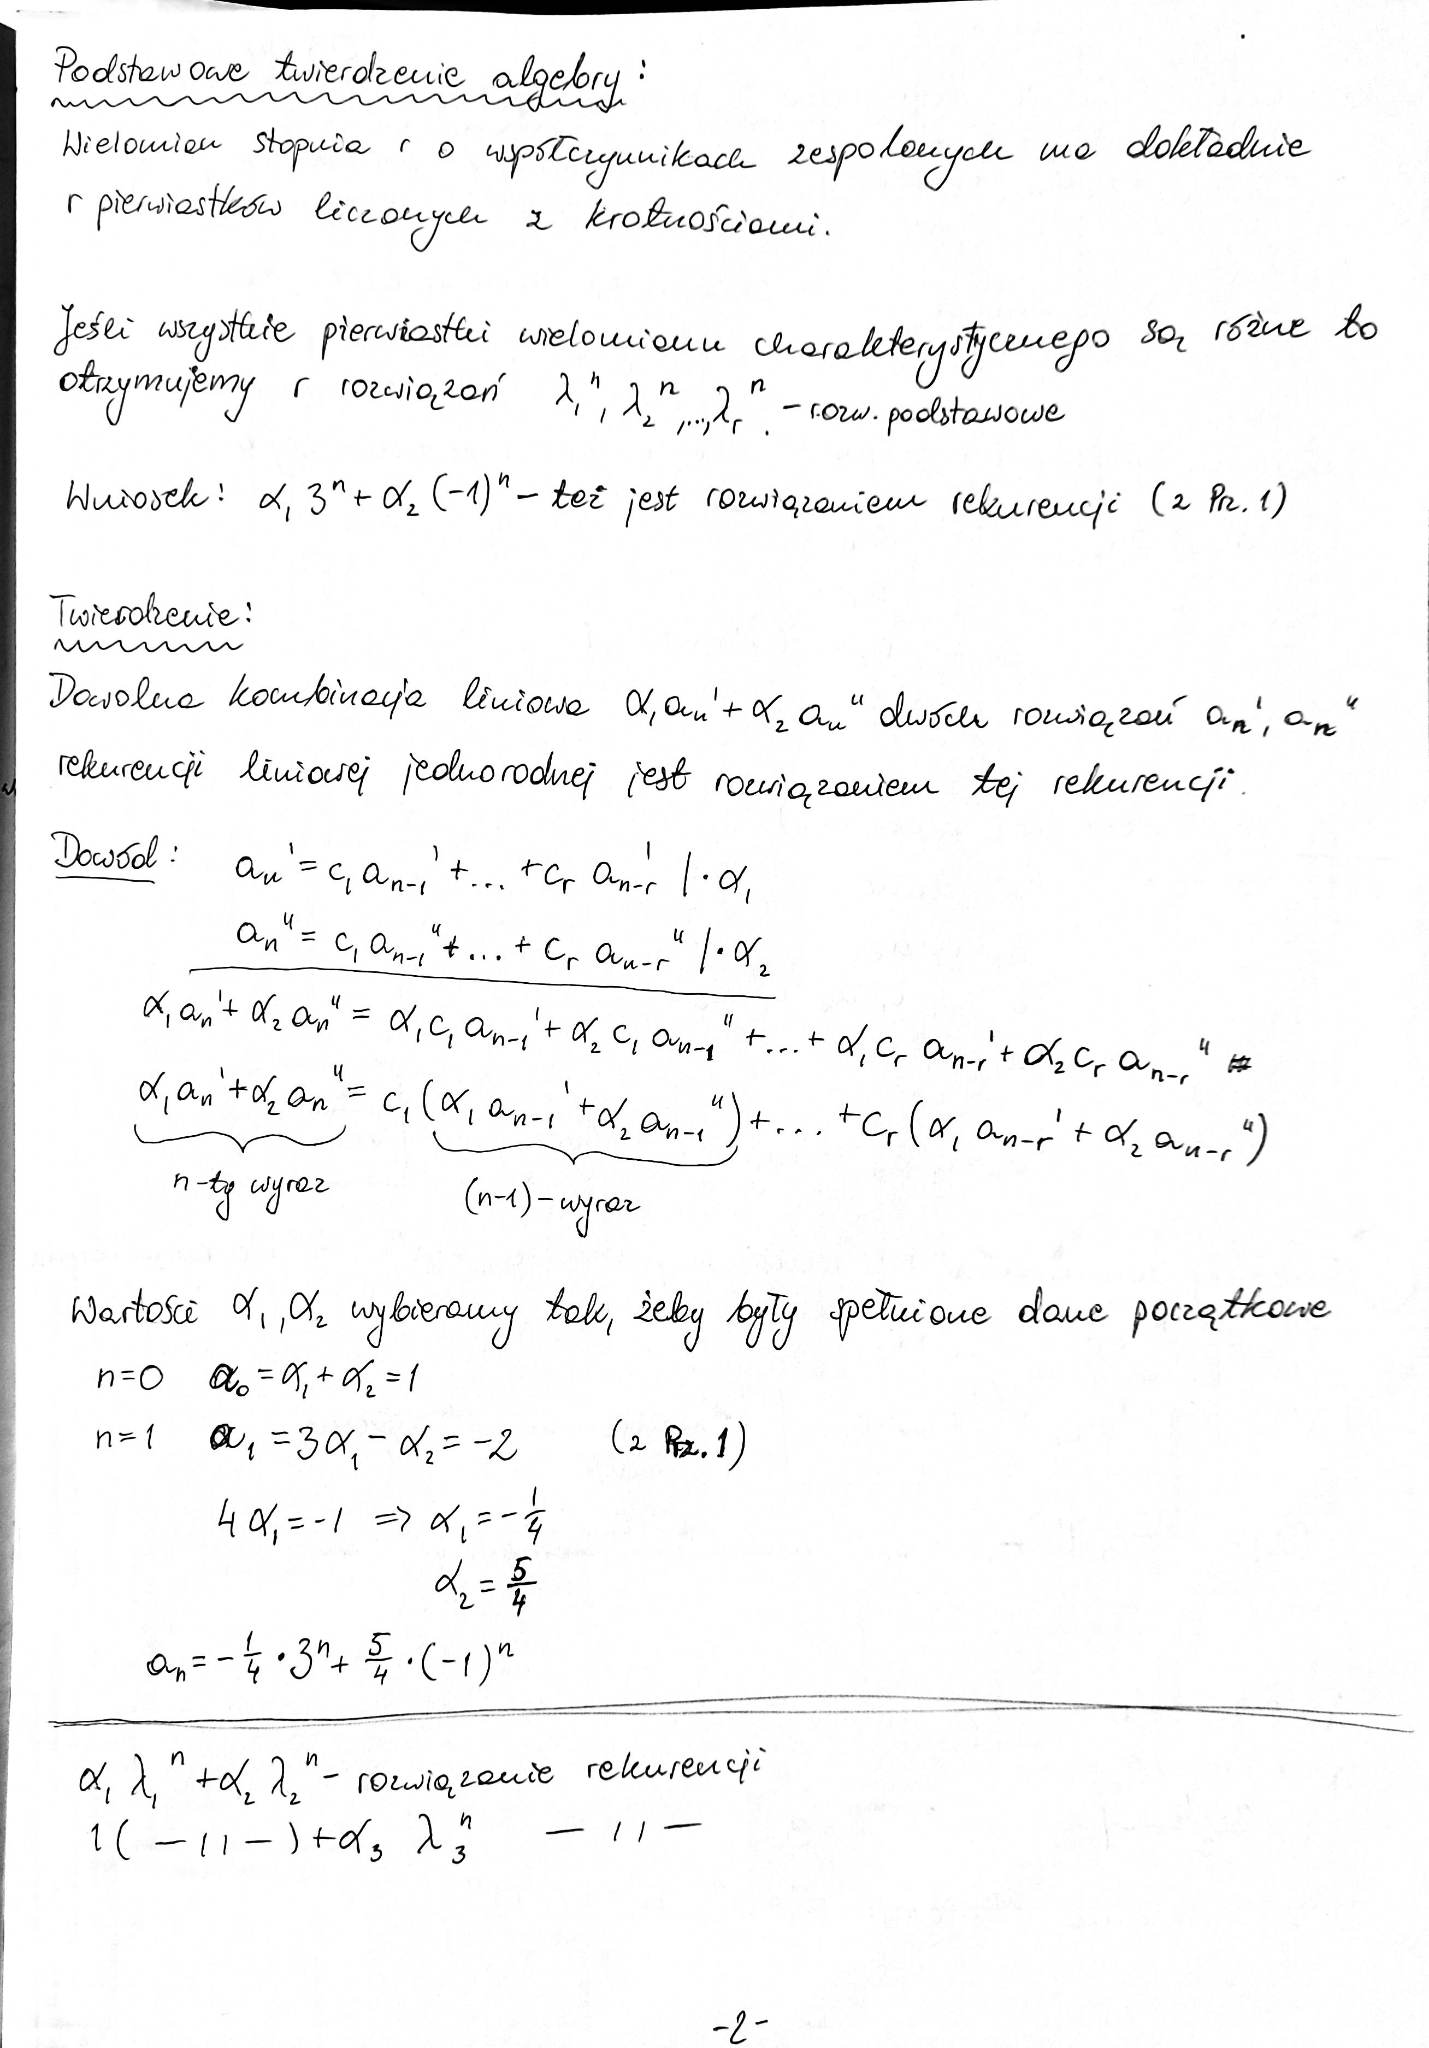 Podstawowe twierdzenie algebry:
Wielomian stopnia r o współczynnikach zespolonych ma dokładnie
r pierwiastków liczonych z krotnościami.
Jeśli wszystkie pierwiastki wielomianu charakterystycznego są różne to
otrzymujemy r rozwiązań λ₁ⁿ, λ₂ⁿ,...,λᵣⁿ. - rozw. podstawowe
Wniosek: α₁ 3ⁿ + α₂ (-1)ⁿ - też jest rozwiązaniem rekurencji (z Prz. 1)
Twierdzenie:
Dowolna kombinacja liniowa α₁aₙ' + α₂ aₙ'' dwóch rozwiązań aₙ', aₙ''
rekurencji liniowej jednorodnej jest rozwiązaniem tej rekurencji.
Dowód: aₙ' = c₁ aₙ₋₁' + ... + cᵣ aₙ₋ᵣ' / · α₁
aₙ'' = c₁ aₙ₋₁'' + ... + cᵣ aₙ₋ᵣ'' / · α₂
α₁aₙ' + α₂aₙ'' = α₁c₁aₙ₋₁' + α₂c₁aₙ₋₁'' + ... + α₁cᵣ aₙ₋ᵣ' + α₂cᵣ aₙ₋ᵣ''
α₁aₙ' + α₂aₙ'' = c₁(α₁aₙ₋₁' + α₂aₙ₋₁'') + ... + cᵣ(α₁aₙ₋ᵣ' + α₂aₙ₋ᵣ'')
n-ty wyraz (n-1)-wyraz
Wartości α₁, α₂ wybieramy tak, żeby były spełnione dane początkowe
n=0 a₀ = α₁ + α₂ = 1
n=1 a₁ = 3α₁ - α₂ = -2 (z Prz. 1)
4α₁ = -1 => α₁ = -1/4
α₂ = 5/4
aₙ = -1/4 · 3ⁿ + 5/4 · (-1)ⁿ
α₁ λ₁ⁿ + α₂ λ₂ⁿ - rozwiązanie rekurencji
1( -11- ) + α₃ λ₃ⁿ -11-
-2-